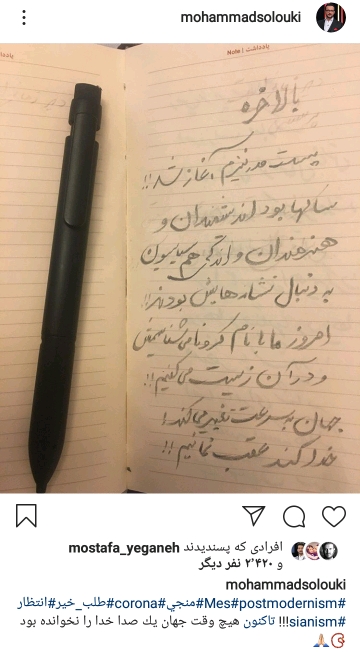 mohammadsolouki
یادداشت | Note
بالاخره
پست مدرنیزم آغاز شد!!
سالها بود اندیشمندان و
هنرمندان و اندکی هم سیاسیون
به دنبال نشانه هایش بودند!!
امروز ما با نام کرونا می شناسیمش
و در آن زیست می کنیم!!
جهان به سرعت تغییر می کند!
خدا کند عقب نمانیم!!!
افرادی که پسندیدند mostafa_yeganeh
و ۲٬۴۲۰ نفر دیگر
mohammadsolouki
#انتظار#طلب_خیر#corona#منجي#Mes#postmodernism
#sianism!!! تاكنون هیچ وقت جهان يك صدا خدا را نخوانده بود